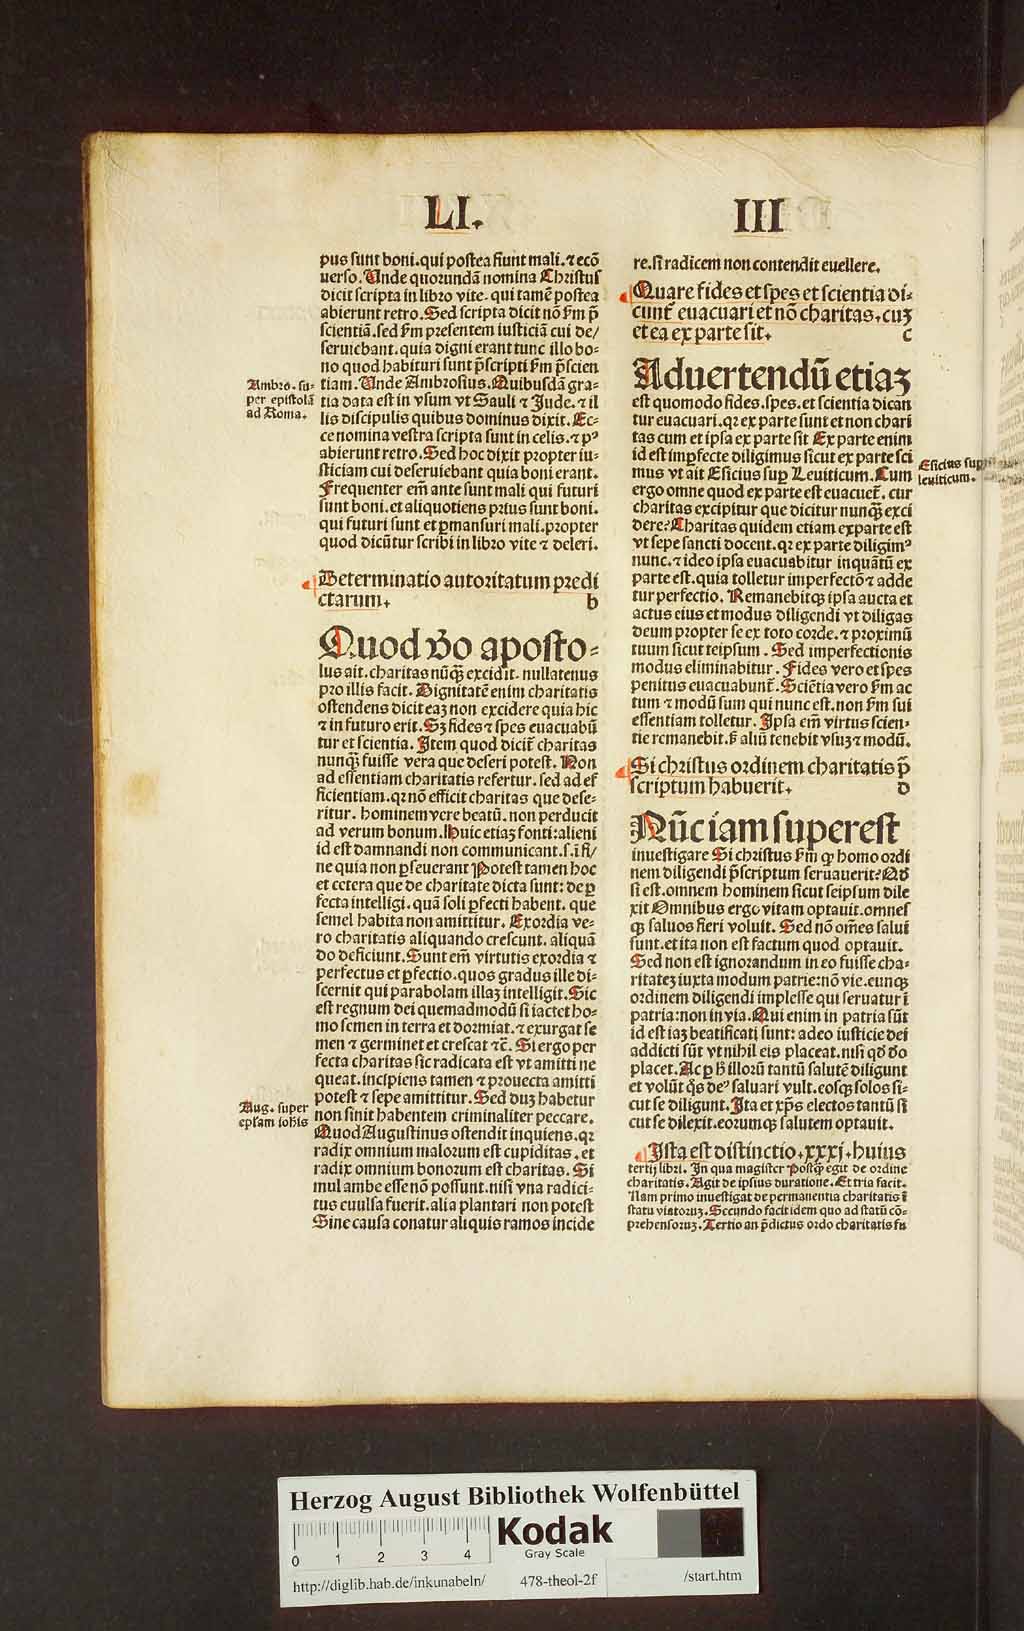 LI.
III
pus sunt boni. qui postea fiunt mali. ⁊ ecō
uerso. Unde quorundā nomina Christus
dicit scripta in libro vite. qui tamē postea
abierunt retro. Sed scripta dicit nō ẜm p̄
scientiā. sed ẜm presentem iusticiā cui de/
seruiebant. quia digni erant tunc illo bo-
no quod habituri sunt p̄scripti ẜm p̄scien
tiam. Unde Ambrosius. Quibusdā gra-
tia data est in vsum vt Sauli ⁊ Jude. ⁊ il
lis discipulis quibus dominus dixit. Ec-
ce nomina vestra scripta sunt in celis. ⁊ pꝰ
abierunt retro. Sed hoc dixit propter iu-
sticiam cui deseruiebant quia boni erant.
Frequenter em̄ ante sunt mali qui futuri
sunt boni. et aliquotiens prius sunt boni.
qui futuri sunt et ꝑmansuri mali. propter
quod dicūtur scribi in libro vite ⁊ deleri.
Ambro. su-
per epistolā
ad Roma.
Determinatio autoritatum predi
ctarum. b
Quod v̄o aposto-
lus ait. charitas nūqꝫ excidit. nullatenus
pro illis facit. Dignitatē enim charitatis
ostendens dicit eaꝫ non excidere quia hic
⁊ in futuro erit. Sꝫ fides ⁊ spes euacuabū
tur et scientia. Item quod dicit̄ charitas
nunqꝫ fuisse vera que deseri potest. Non
ad essentiam charitatis refertur. sed ad ef
ficientiam. qꝛ nō efficit charitas que dese-
ritur. hominem vere beatū. non perducit
ad verum bonum. Huic etiaꝫ fonti: alieni
id est damnandi non communicant. s. ī fi/
ne quia non ꝑseuerant Potest tamen hoc
et cetera que de charitate dicta sunt: de ꝑ
fecta intelligi. quā soli ꝑfecti habent. que
semel habita non amittitur. Exordia ve-
ro charitatis aliquando crescunt. aliquā
do deficiunt. Sunt em̄ virtutis exordia ⁊
perfectus et ꝑfectio. quos gradus ille di-
scernit qui parabolam illaꝫ intelligit. Sic
est regnum dei quemadmodū si iactet ho-
mo semen in terra et dormiat. ⁊ exurgat se
men ⁊ germinet et crescat ⁊c̄. Si ergo per
fecta charitas sic radicata est vt amitti ne
queat. incipiens tamen ⁊ prouecta amitti
potest ⁊ sepe amittitur. Sed duꝫ habetur
non sinit habentem criminaliter peccare.
Quod Augustinus ostendit inquiens. qꝛ
radix omnium malorum est cupiditas. et
radix omnium bonorum est charitas. Si
mul ambe esse nō possunt. nisi vna radici-
tus euulsa fuerit. alia plantari non potest
Sine causa conatur aliquis ramos incide
Aug. super
epl̄am ioh̄is
re. si radicem non contendit euellere.
Quare fides et spes et scientia di-
cunt̄ euacuari et nō charitas. cuꝫ
et ea ex parte sit. c
Aduertendū etiaꝫ
est quomodo fides. spes. et scientia dican
tur euacuari. qꝛ ex parte sunt et non chari
tas cum et ipsa ex parte sit Ex parte enim
id est imperfecte diligimus sicut ex parte sci
mus vt ait Esicius suꝑ Leuiticum. Cum
ergo omne quod ex parte est euacuet̄. cur
charitas excipitur que dicitur nunqꝫ exci
dere? Charitas quidem etiam ex parte est
vt sepe sancti docent. qꝛ ex parte diligimꝰ
nunc. ⁊ ideo ipsa euacuabitur inquātū ex
parte est. quia tolletur imperfectō ⁊ adde
tur perfectio. Remanebitqꝫ ipsa aucta et
actus eius et modus diligendi vt diligas
deum propter se ex toto corde. ⁊ proximū
tuum sicut teipsum. Sed imperfectionis
modus eliminabitur. Fides vero et spes
penitus euacuabunt̄. Sciētia vero ẜm ac
tum ⁊ modū sum qui nunc est. non ẜm sui
essentiam tolletur. Ipsa em̄ virtus scien-
tie remanebit. ẜ aliū tenebit vsuꝫ ⁊ modū.
Esicius suꝑ
leuiticum.
Si christus ordinem charitatis p̄
scriptum habuerit. d
Nūc iam superest
inuestigare Si christus ẜm ꝙ homo ordi
nem diligendi p̄scriptum seruauerit? Qd̄
si est. omnem hominem sicut seipsum dile
xit Omnibus ergo vitam optauit. omnes
qꝫ saluos fieri voluit. Sed nō om̄es salui
sunt. et ita non est factum quod optauit.
Sed non est ignorandum in eo fuisse cha-
ritateꝫ iuxta modum patrie: nō vie. eunqꝫ
ordinem diligendi implesse qui seruatur ī
patria: non in via. Qui enim in patria sūt
id est iaꝫ beatificati sunt: adeo iusticie dei
addicti sūt vt nihil eis placeat. nisi qd̄ d̄o
placet. Ac ꝑ h̄ illorū tantū salutē diligunt
et volūt q̄s deꝰ saluari vult. eosqꝫ solos si-
cut se diligunt. Ita et xp̄s electos tantū si
cut se dilexit. eorumqꝫ salutem optauit.
Ista est distinctio. xxxj. huius
tertij libri. In qua magister Postqꝫ egit de ordine
charitatis. Agit de ipsius duratione. Et tria facit.
Nam primo inuestigat de permanentia charitatis ī
statu viatoruꝫ. Secundo facit idem quo ad statū cō-
prehensoruꝫ. Tertio an p̄dictus ordo charitatis fu
Herzog August Bibliothek Wolfenbüttel
0 1 2 3 4
Kodak
Gray Scale
http://diglib.hab.de/inkunabeln/ 478-theol-2f /start.htm